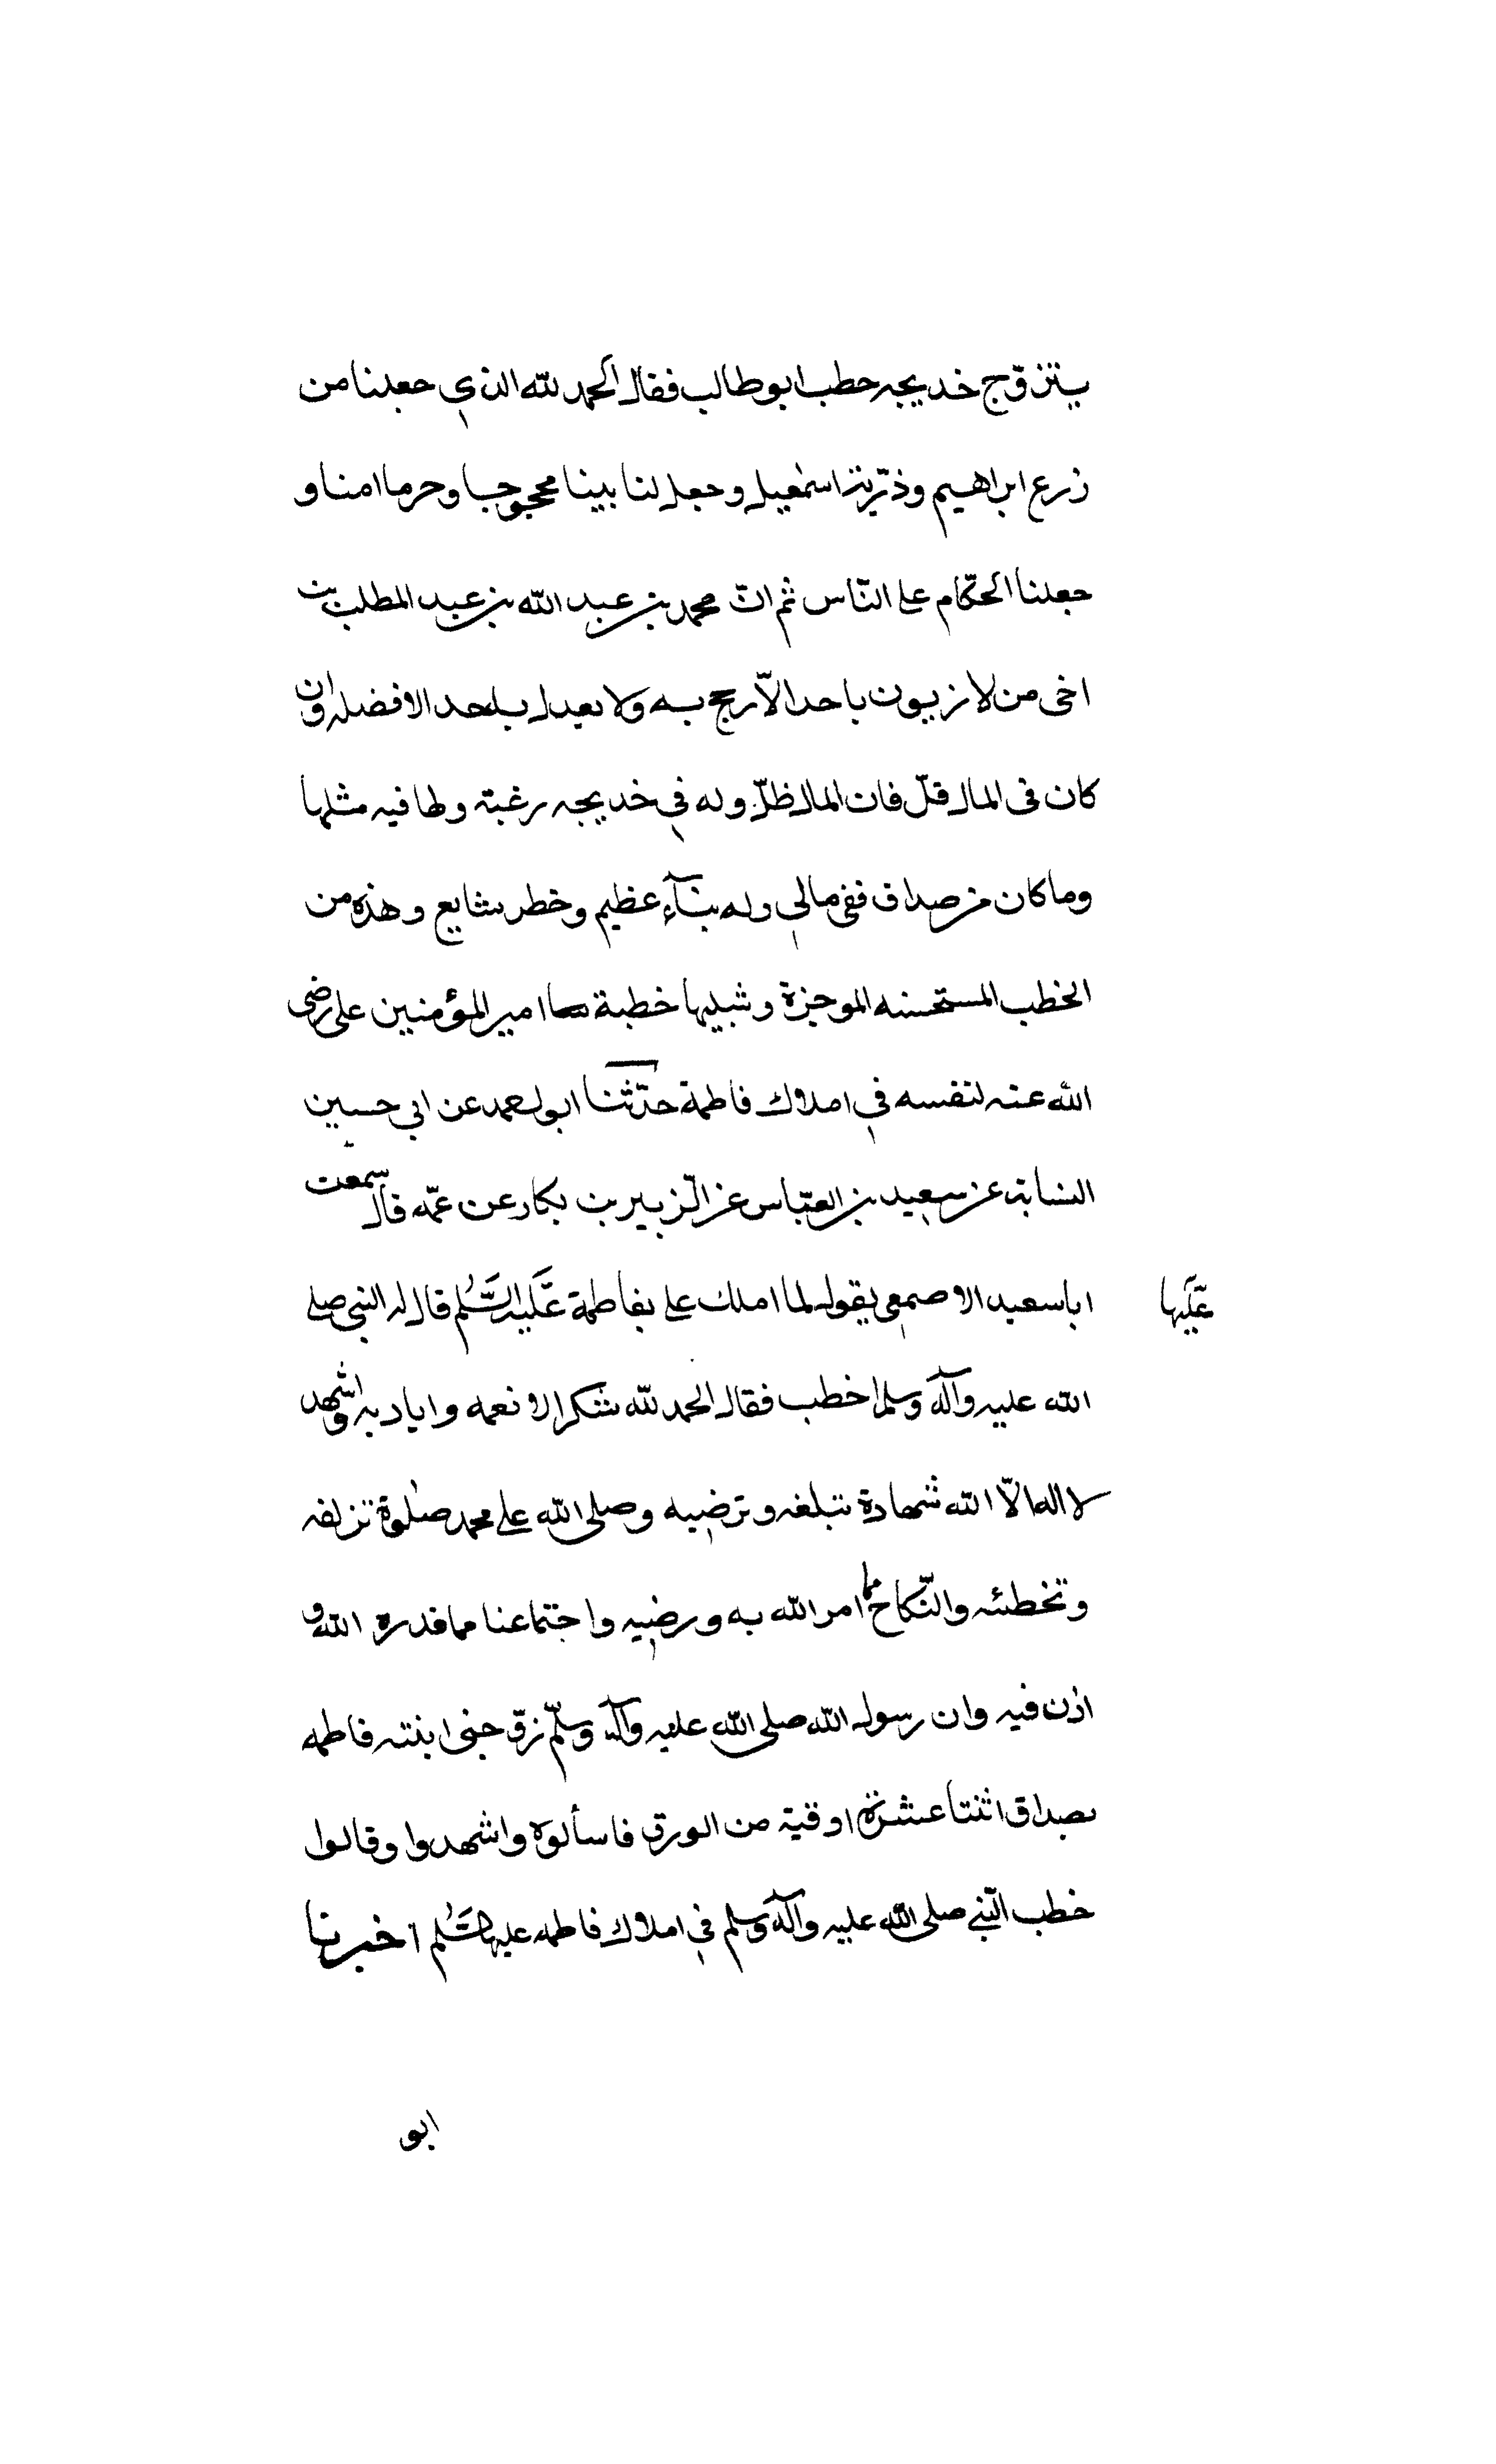 يتزوّج خديجه خطب ابو طالب فقال الحمد لله الذي جعلنا من
زرع ابراهيم وذرّية اسمٰعيل وجعل لنا بيتا محجوجا وحرما امنا و
جعلنا الحكّام على النّاس ثم انّ محمد بن عبد الله بن عبد المطلب بن
اخى من لا يزيون باحد الاّ رجح به ولا يعدل باحد الا فضله وان
كان فى المال قلّ فان المال ظلّ وله في خديجه رغبة ولها فيه مثلها
وما كان من صداق ففى مالي وله بنآء عظيم وخطر شايع وهذه من
الخطب المستحسنه الموجزة وشبيها خطبة امير المؤمنين على رضى
الله عنه لنفسه في املاك فاطمة حدّثنا ابو احمد عن ابي حسين
النسابة عن سعيد بن العبّاس عن الزّبير بن بكار عن عمّه قال سمعت
ابا سعيد الاصمعي يقول لما املك على بفاطمة عَلَيه السَّلٰم قال له النبي صلى
عَلَيها
الله عليه وآله وسلم اخطب فقال الحمد لله شكرا لانعمه واياديه واشهد
لا اله الاّ الله شهادة تبلغه وترضيه وصلى الله على محمد صلٰوة تزلفه
وتخطئه والنّكاح مما امر الله به ورضيه واجتماعنا مما قدره الله و
اذن فيه وان رسول الله صلى الله عليه وآله وسلّم زوّجنى ابنته فاطمه
بصداق اثنتا عشرة اوقية من الورق فاسألوه واشهدوا وقالوا
خطب النّبي صلى الله عليه وآله وسلم في املاك فاطمه عليها السَّلٰم اخبرنا
ابو